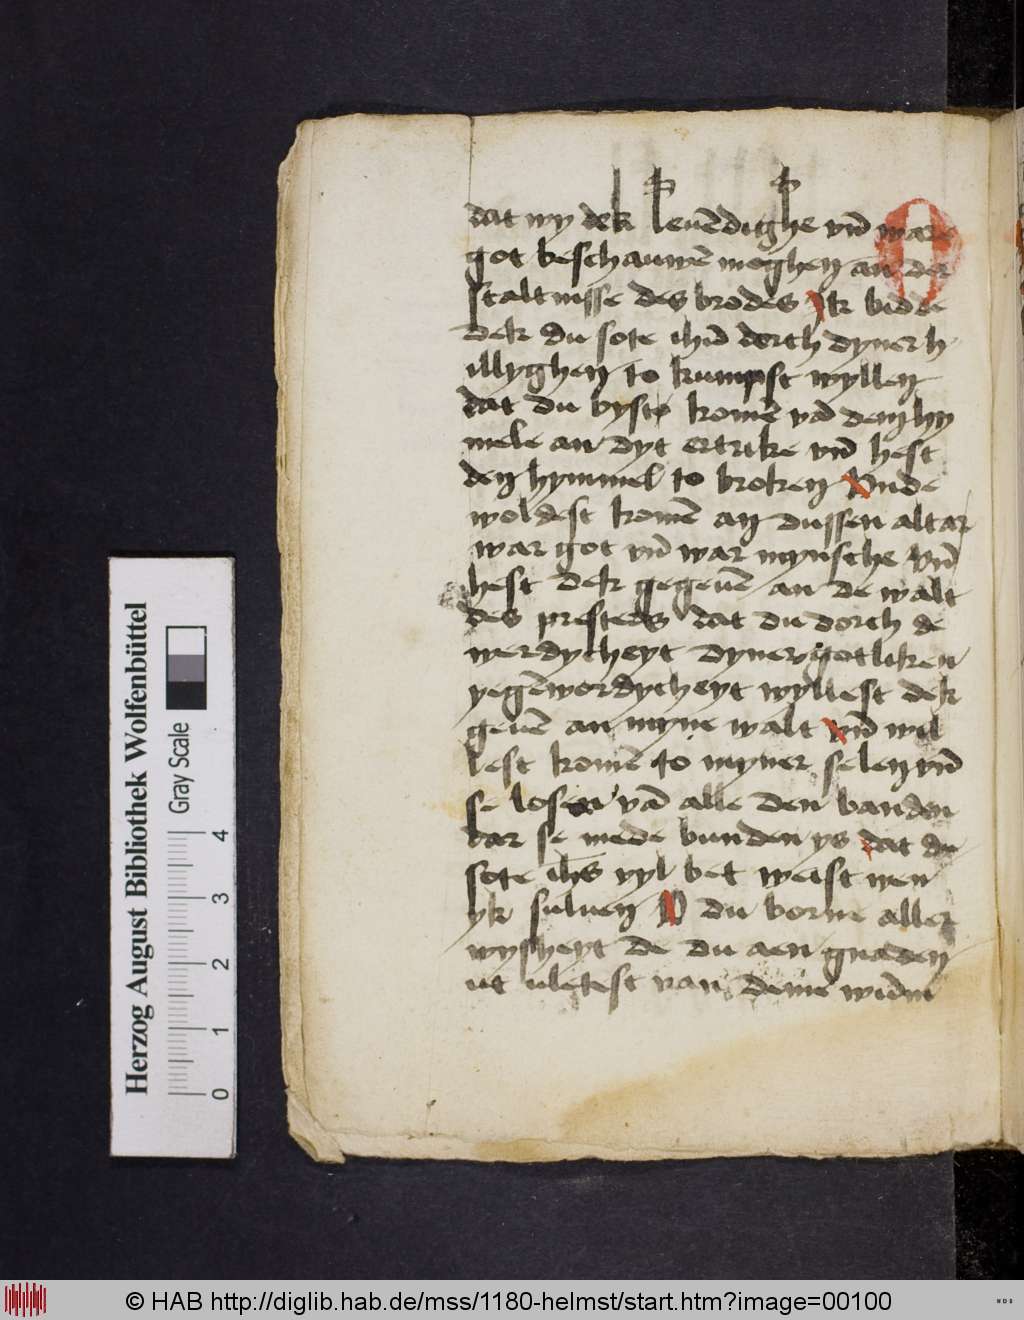 dat wy dek leuēdighe vn̄ ware
got beschauwē moghen an der
staltnisse des brodes Ik bidde
dek du sote ihū dorch dyner h
illyghen to kumpst wyllen
dat du byst komē vā dem hy
mele an dyt ertrike vn̄ hest
den hymmel to broken Vnde
woldest komē an dussen altar
war got vn̄ war mynsche vn̄
hest dek gegeuē an de walt
des presters dat du dorch de
werdycheyt dyner gotliken
yegēwordycheyt wyllest dek
geuē an myne walt vn̄ wil
lest komē to myner selen vn̄
se losen vā alle den banden
dar se mede bunden ys dat du
sote ihs vyl bet weist wen
yk suluen O du borne aller
wysheyt de du aen gnaden
ut vletest van
Herzog August Bibliothek Wolfenbüttel
Gray Scale
0 1 2 3 4
© HAB http://diglib.hab.de/mss/1180-helmst/start.htm?image=00100